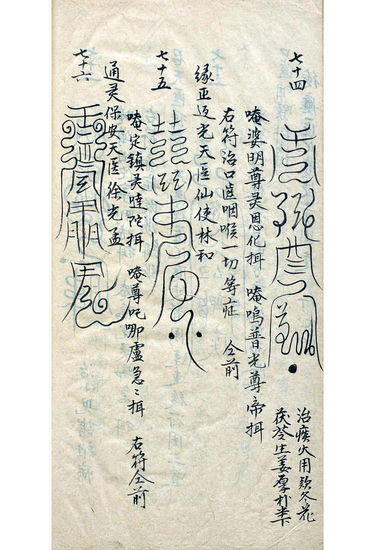 七十四
治痰火用款冬花
茯苓生姜厚朴半下
唵婆明尊灵恩化揖 唵嗚普光尊帝揖
右符治口齒咽喉一切等症 仝前
七十五
緣亚迈光天医仙使林和
唵定鎮灵哇陀揖 唵尊吒哪盧急〻揖 右符仝前
七十六
通灵保安天医徐光孟